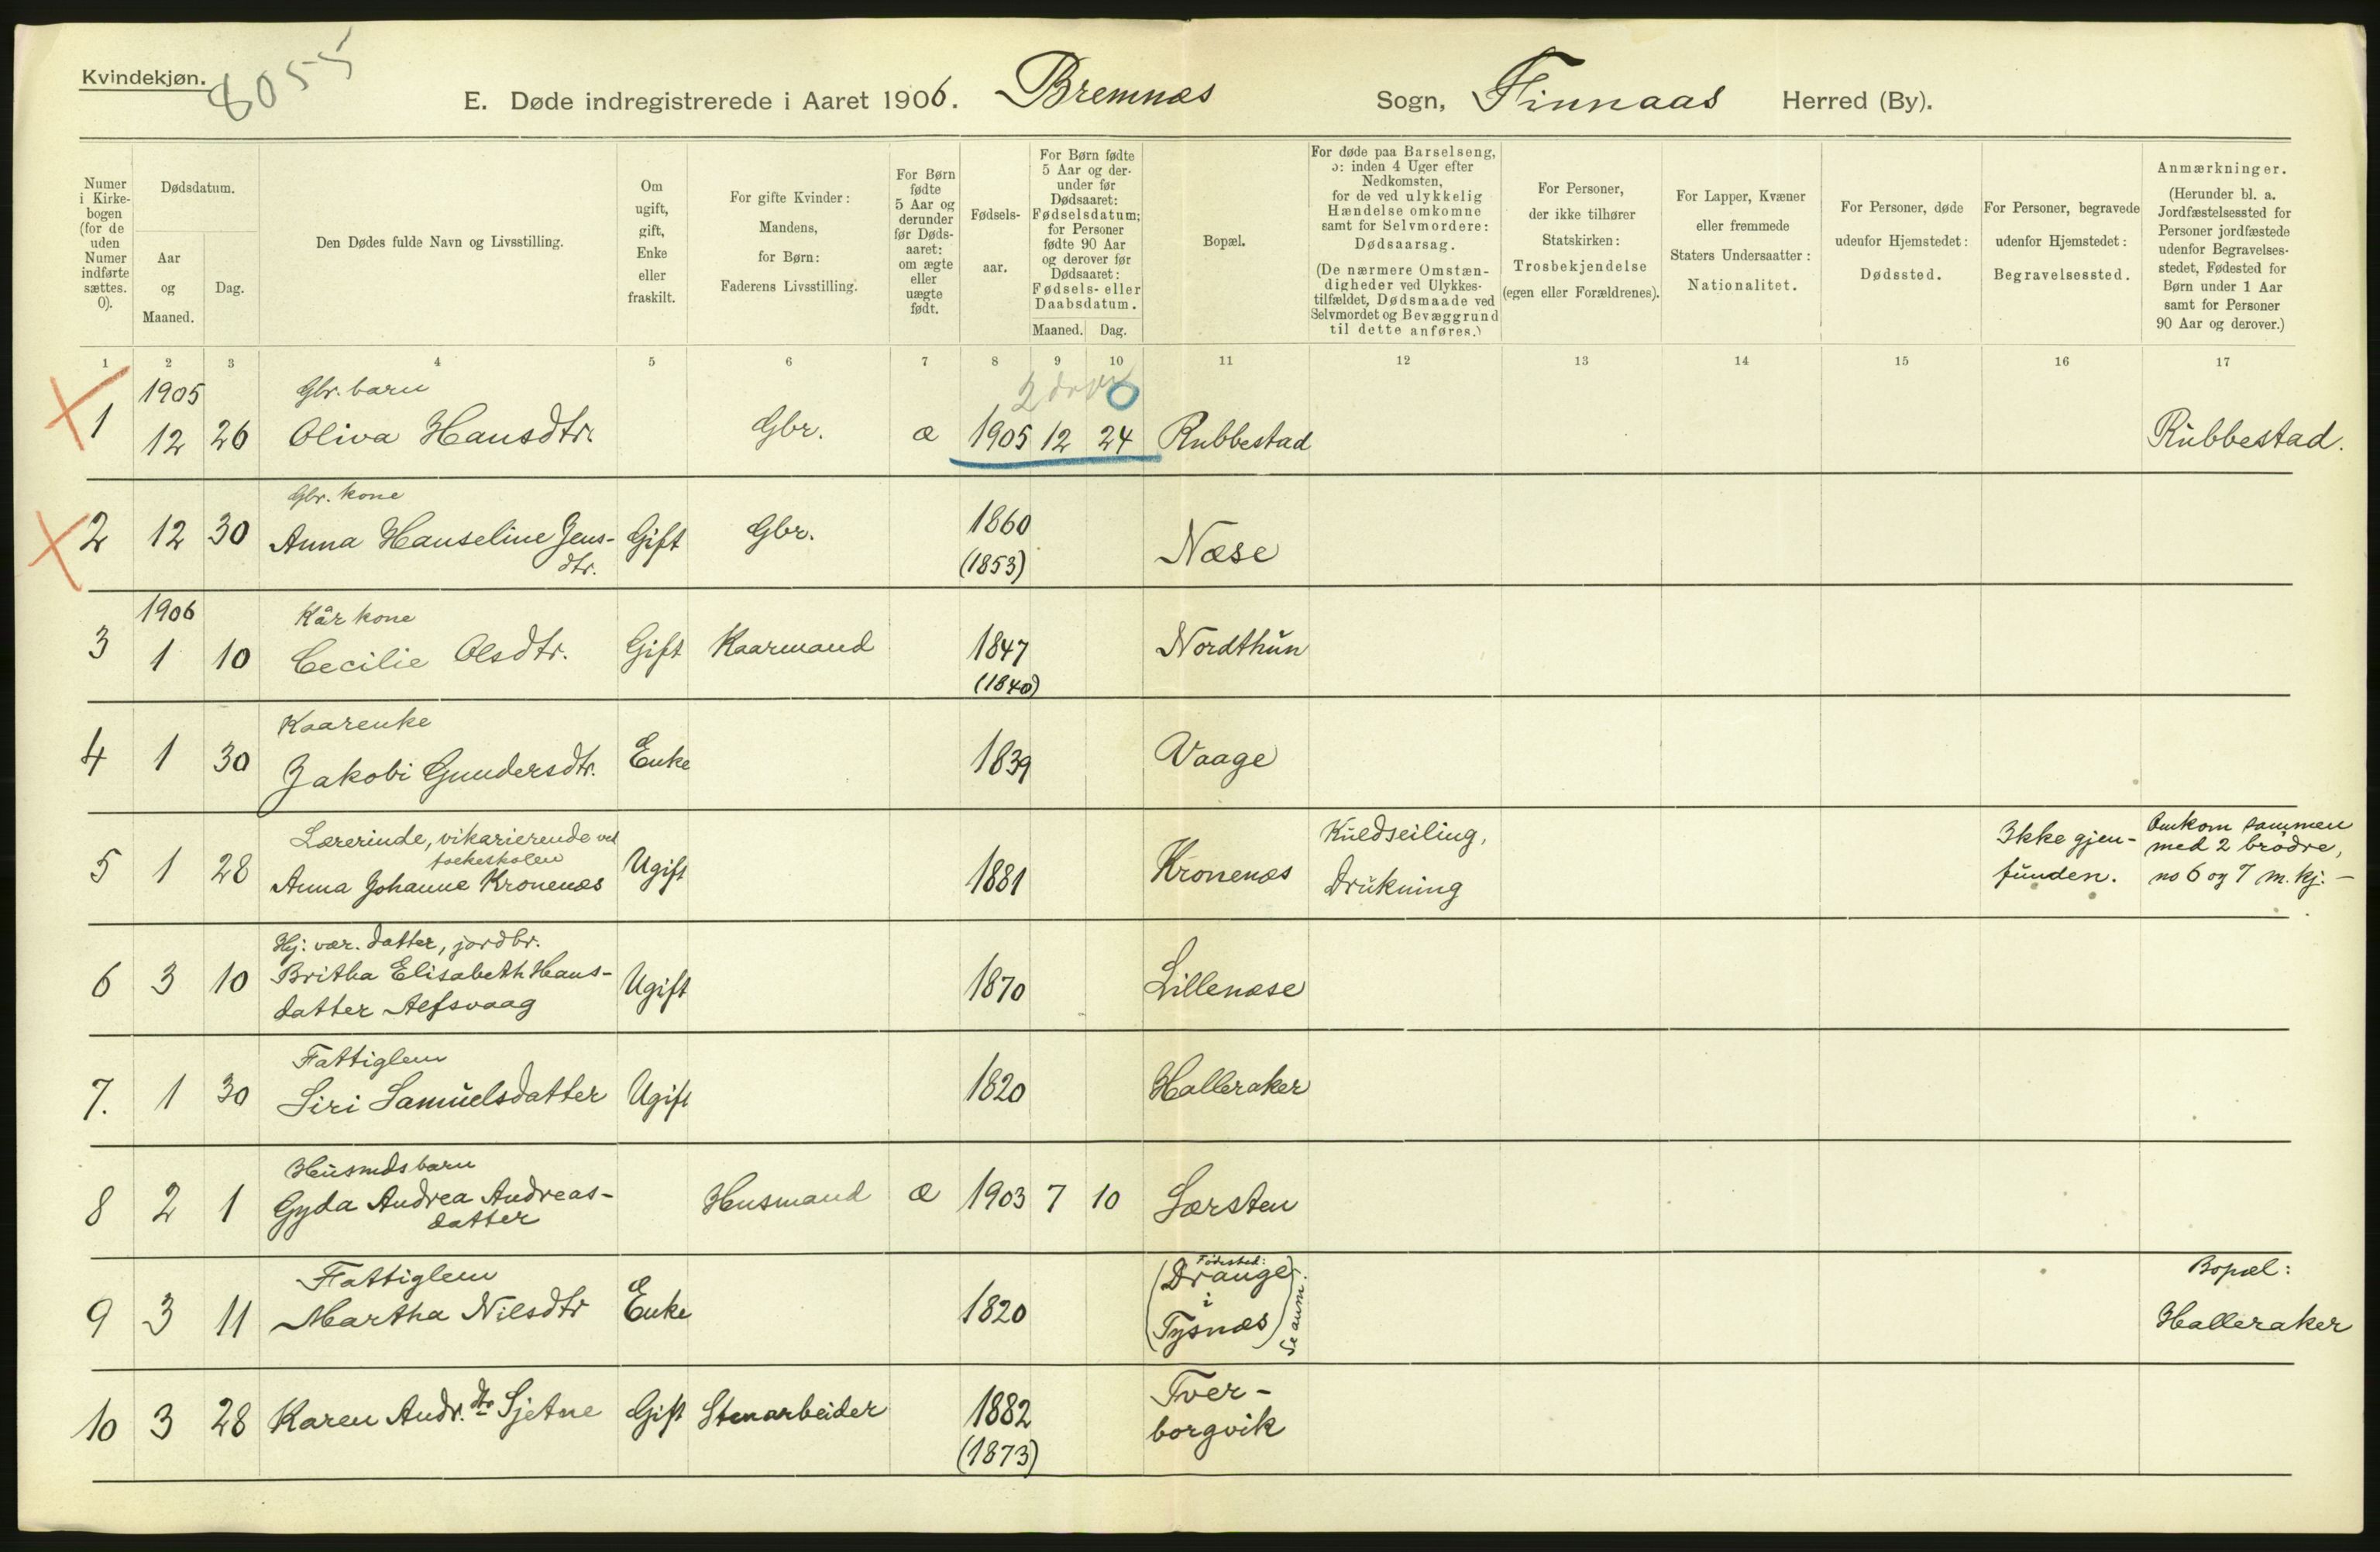 Kvindekjøn.
8055
E. Døde indregistrerede i Aaret 1906. Bremnæs Sogn, Finnaas Herred (By).
Numer i Kirke-bogen (for de uden Numer indførte sættes. 0).
Dødsdatum.
Aar og Maaned.
Dag.
Den Dødes fulde Navn og Livsstilling.
Om ugift, gift, Enke eller fraskilt.
For gifte Kvinder: Mandens, for Børn: Faderens Livsstilling.
For Børn fødte 5 Aar og derunder før Døds-aaret: om ægte eller uægte født.
Fødsels-aar.
For Børn fødte 5 Aar og der-under før Dødsaaret: Fødselsdatum; for Personer fødte 90 Aar og derover før Dødsaaret: Fødsels- eller Daabsdatum.
Maaned. Dag.
Bopæl.
For døde paa Barselseng, ɔ: inden 4 Uger efter Nedkomsten, for de ved ulykkelig Hændelse omkomne samt for Selvmordere: Dødsaarsag.
(De nærmere Omstæn-digheder ved Ulykkes-tilfældet, Dødsmaade ved Selvmordet og Bevæggrund til dette anføres.)
For Personer, der ikke tilhører Statskirken: Trosbekjendelse (egen eller Forældrenes).
For Lapper, Kvæner eller fremmede Staters Undersaatter: Nationalitet.
For Personer, døde udenfor Hjemstedet: Dødssted.
For Personer, begravede udenfor Hjemstedet: Begravelsessted.
Anmærkninger.
(Herunder bl. a. Jordfæstelsessted for Personer jordfæstede udenfor Begravelses-stedet, Fødested for Børn under 1 Aar samt for Personer 90 Aar og derover.)
1 2 3 4 5 6 7 8 9 10 11 12 13 14 15 16 17
1905 Gbr. barn 2 0
1 12 26 Oliva Hansdtr. Gbr. æ 1905 12 24 Rubbestad Rubbestad.
Gbr. kone
2 12 30 Anna Hanseline Jens- Gift Gbr. 1860 Næse
dtr. (1853)
1906 Kår kone
3 1 10 Cecilie Olsdtr. Gift Kaarmand 1847 Nordthun
(1840)
Kaarenke
4 1 30 Jakobi Gundersdtr. Enke 1839 Vaage
Lærerinde, vikarierende ved Kuldseiling, Ikke gjen- Omkom sammen
folkeskolen med 2 brødre,
5 1 28 Anna Johanne Kronenæs Ugift 1881 Kronenæs Drukning funden. no 6 og 7 m. kj. -
Hj: vær. datter, jordbr.
6 3 10 Britha Elisabeth Hans- Ugift 1870 Lillenæse
datter Alfsvaag
Fattiglem
7. 1 30 Siri Samuelsdatter Ugift 1820 Halleraker
Husmdsbarn
8 2 1 Gyda Andrea Andreas- Husmand æ 1903 7 10 Sørsten
datter
Fattiglem (Fødested: Drange Bopæl:
9 3 11 Martha Nilsdtr Enke 1820 i Tysnæs) Se anm. Halleraker
10 3 28 Karen Andr. dtr Sjetne Gift Stenarbeider 1882 Tver-
(1873) borgvik